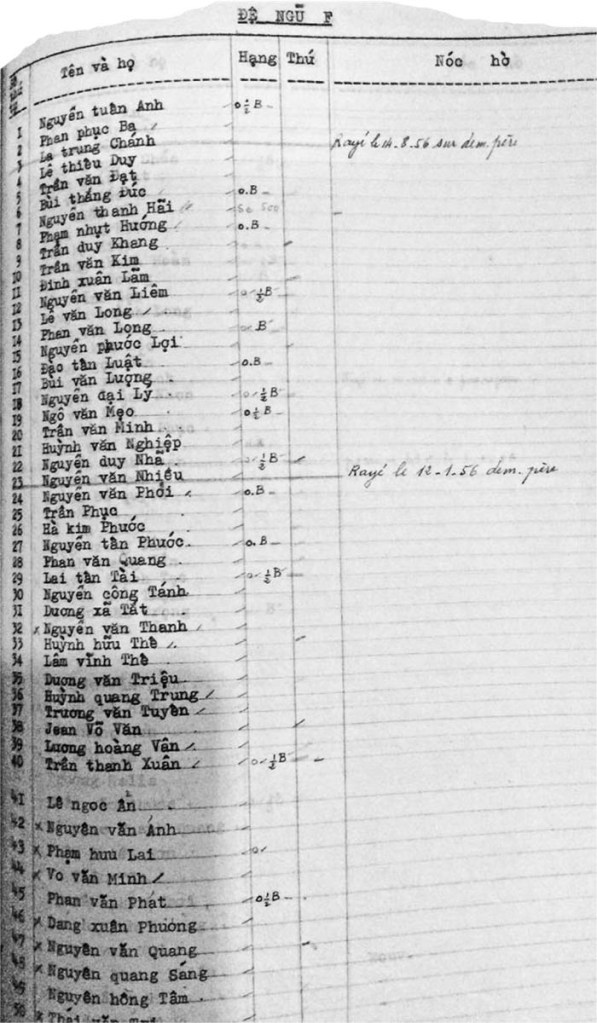 ĐỆ NGŨ F
Tên và họ Hạng Thứ Nóc hờ
1 Nguyễn tuấn Anh o ½ B
2 Phan phục Ba
3 La trung Chánh Rayé le 14-8-56 sur dem. père
4 Lê thiều Duy
5 Trần văn Đạt
6 Bùi thắng Đức o.B
7 Nguyễn thanh Hãi
8 Phạm nhựt Hướng o.B
9 Trần duy Khang
10 Trần văn Kim
11 Đinh xuân Lãm
12 Nguyễn văn Liêm o ½ B
13 Lê văn Long
14 Phan văn Long B
15 Nguyễn phước Lợi
16 Đạo tân Luật o.B
17 Bùi văn Lượng
18 Nguyễn đại Lý o ½ B
19 Ngô văn Mẹo o ½ B
20 Trần văn Minh
21 Huỳnh văn Nghiệp
22 Nguyễn duy Nhã o ½ B
23 Nguyễn văn Nhiều Rayé le 12-1-56 dem. père
24 Nguyễn văn Phối o.B
25 Trần Phục
26 Hà kim Phước
27 Nguyễn tấn Phước o.B
28 Phan văn Quang
29 Lai tân Tài o ½ B
30 Nguyễn công Tánh
31 Dương xã Tất
32 x Nguyễn văn Thanh
33 Huỳnh hữu Thê
34 Lâm vĩnh Thê
35 Dương văn Triệu
36 Huỳnh quang Trung
37 Trương văn Tuyên
38 Jean Võ Văn
39 Lương hoàng Vân
40 Trần thanh Xuân o ½ B
41 Lê ngọc Ẩn
42 x Nguyễn văn Ánh
43 x Phạm huu Lai o
44 x Vo văn Minh
45 Phan văn Phát o ½ B
46 x Dang xuân Phương
47 x Nguyễn văn Quang
48 x Nguyễn quang Sáng
49 Nguyễn hồng Tâm
50 x Thái văn